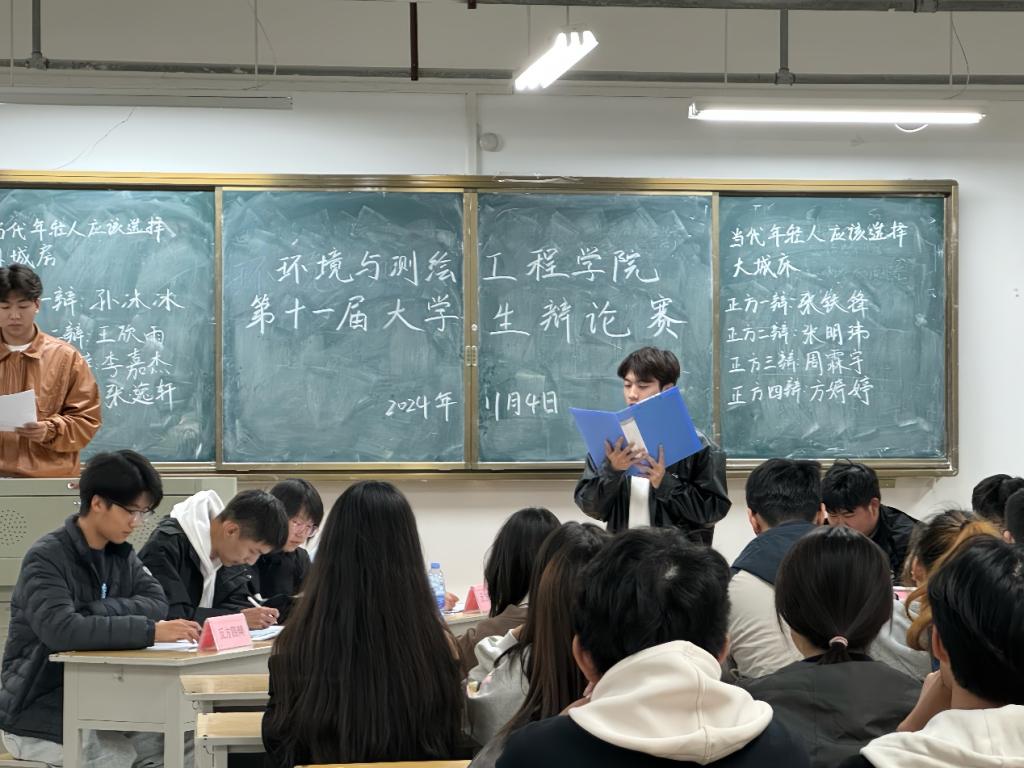 当代年轻人应该选择
城房
一辩:孙冰冰
辩:王欣雨
李嘉杰
张逸轩
环境与测绘工程学院
第十一届大学生辩论赛
2024年11月4日
当代年轻人应该选择
大城床
正方一辩:张铁锋
正方二辩:张明玮
正方三辩:周霖宇
正方四辩:方婷婷
反方四辩